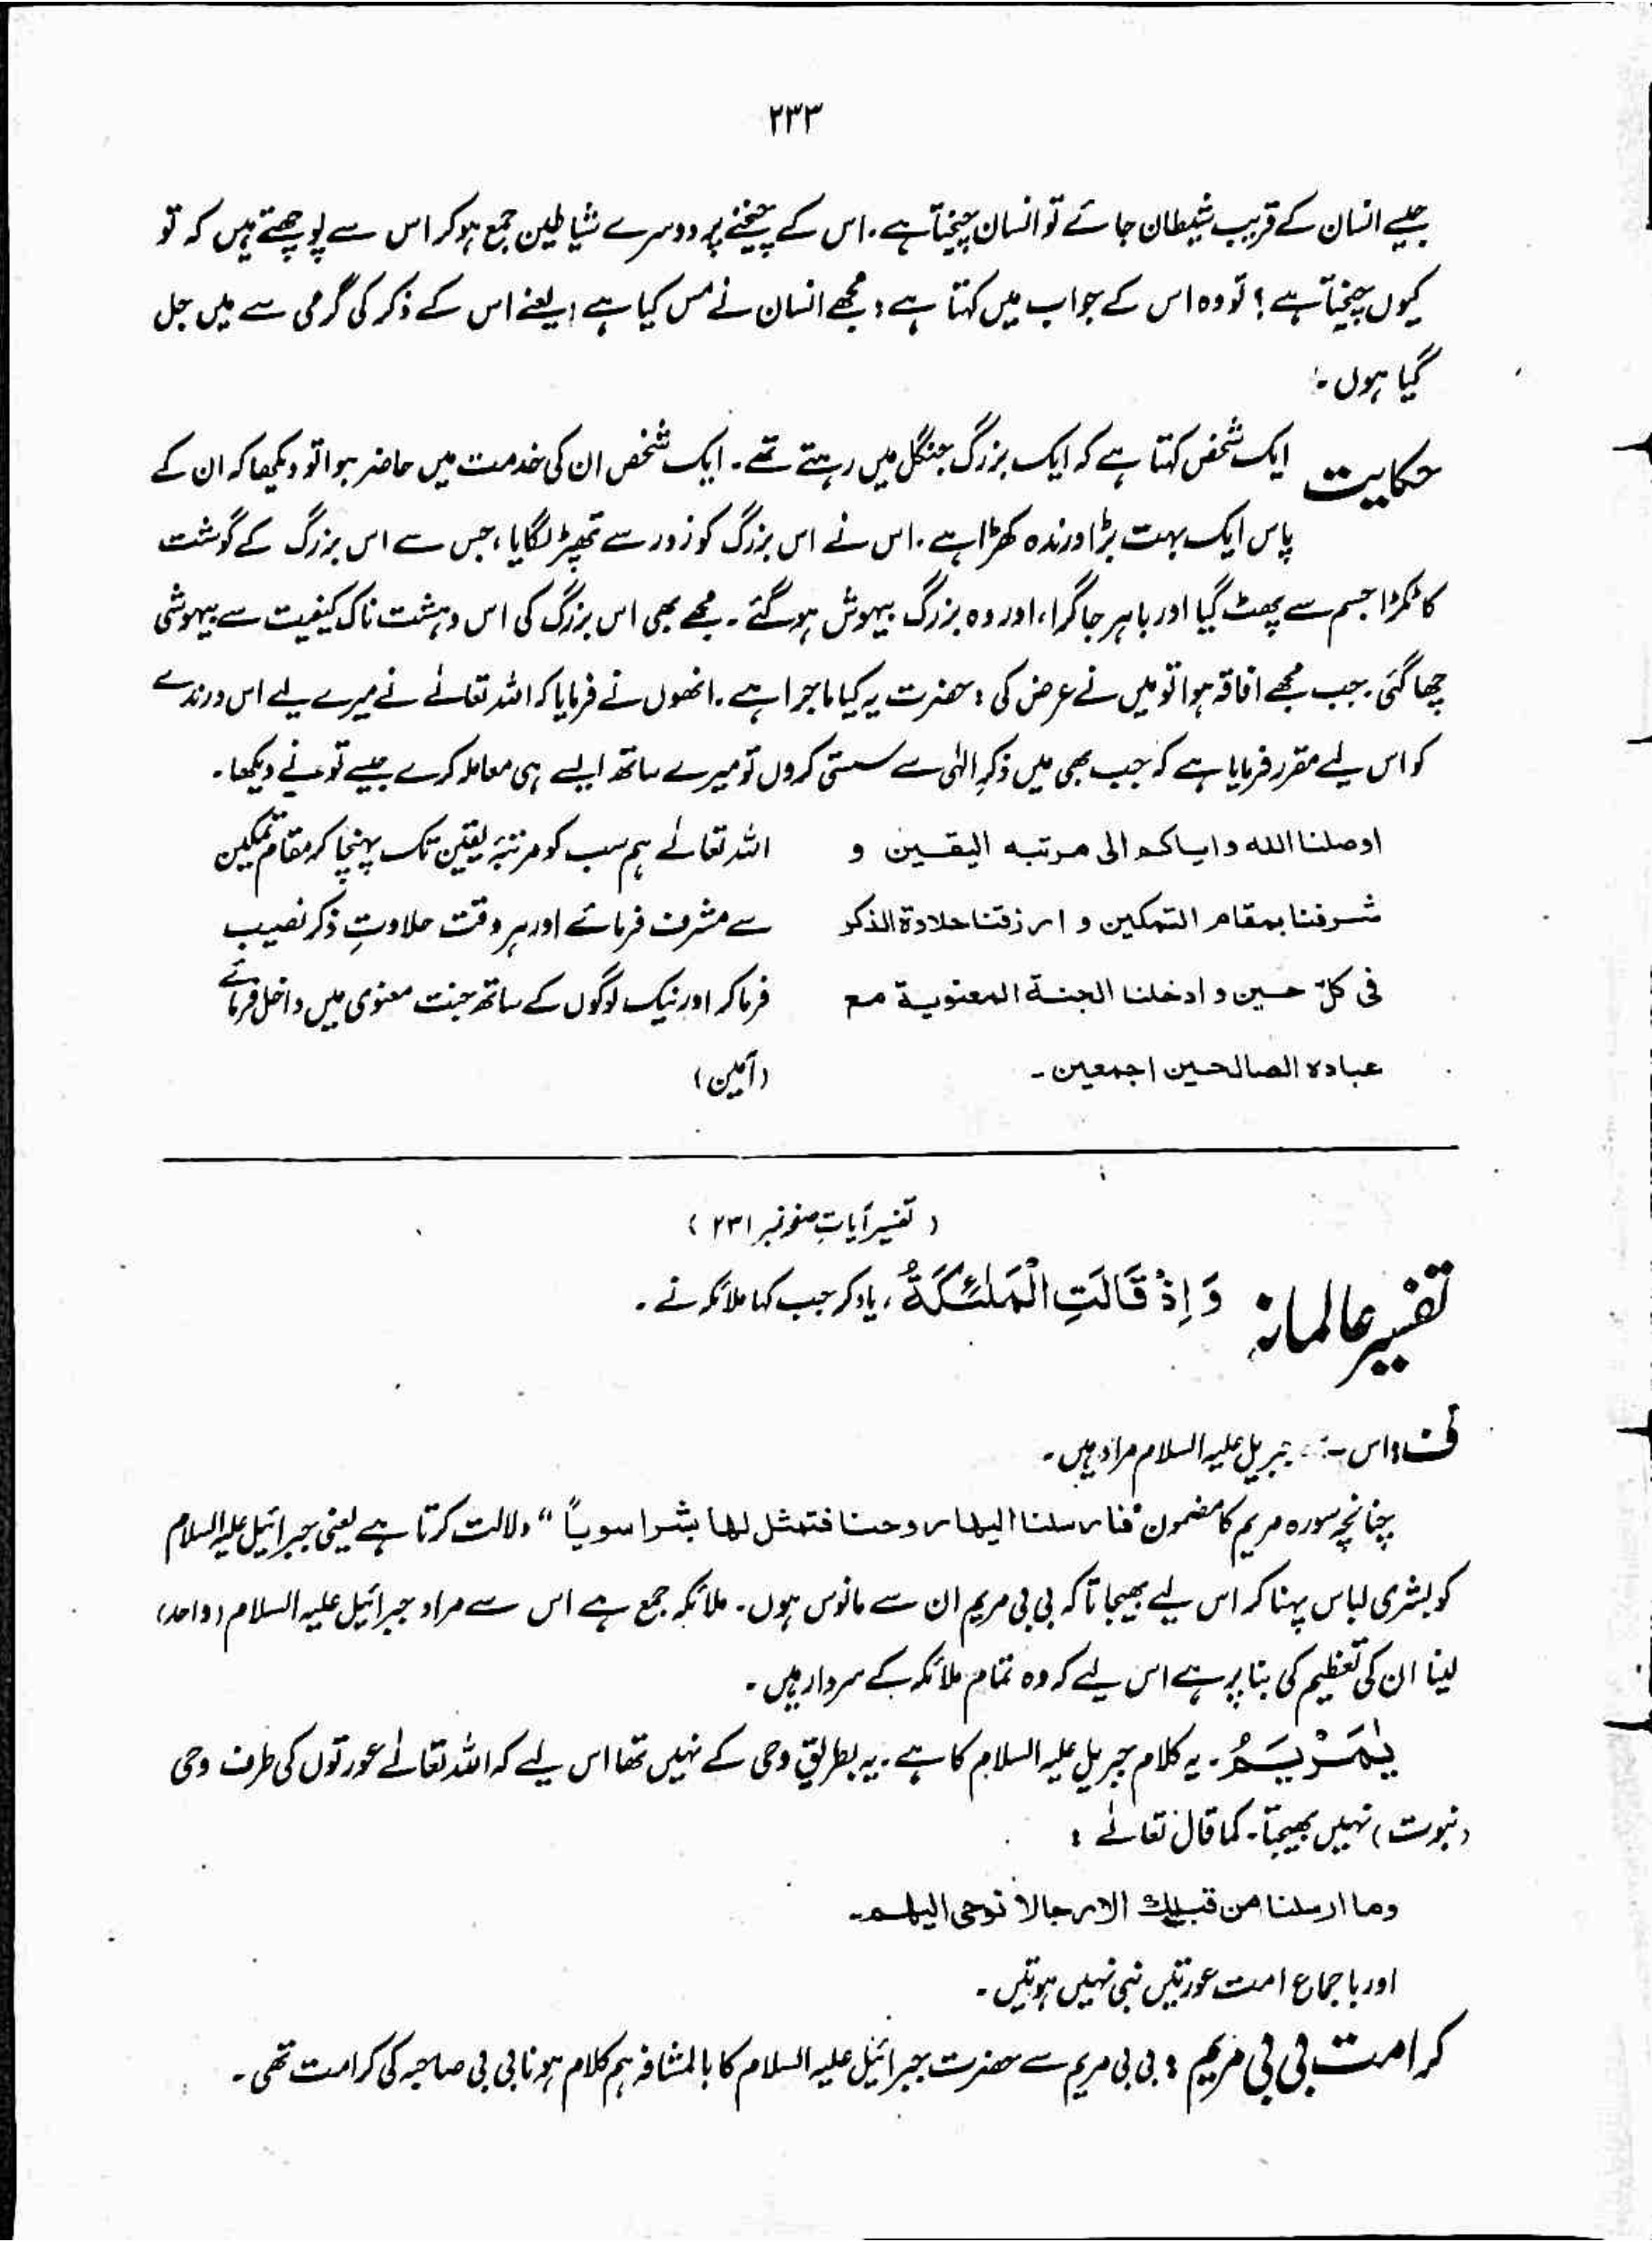 ۲۳۳
جیسے انسان کے قریب شیطان جائے تو انسان چیختا ہے۔ اس کے چیخنے پر دوسرے شیاطین جمع ہو کر اس سے پوچھتے ہیں کہ تو
کیوں چیختا ہے؟ تو وہ اس کے جواب میں کہتا ہے: مجھے انسان نے مس کیا ہے، یعنے اس کے ذکر کی گرمی سے میں جل
گیا ہوں۔
حکایت ایک شخص کہتا ہے کہ ایک بزرگ جنگل میں رہتے تھے۔ ایک شخص ان کی خدمت میں حاضر ہوا تو دیکھا کہ ان کے
پاس ایک بہت بڑا درندہ کھڑا ہے۔ اس نے اس بزرگ کو زور سے تھپڑ لگایا، جس سے اس بزرگ کے گوشت
کا ٹکڑا جسم سے پھٹ گیا اور باہر جا گرا، اور وہ بزرگ بیہوش ہو گئے۔ مجھے بھی اس بزرگ کی اس دہشت ناک کیفیت سے بیہوشی
چھا گئی۔ جب مجھے افاقہ ہوا تو میں نے عرض کی: حضرت یہ کیا ماجرا ہے۔ انھوں نے فرمایا کہ اللہ تعالےٰ نے میرے لیے اس درندے
کو اس لیے مقرر فرمایا ہے کہ جب بھی میں ذکرِ الٰہی سے سستی کروں تو میرے ساتھ ایسے ہی معاملہ کرے جیسے تو نے دیکھا۔
اوصلنا الله واياكم الى مرتبه اليقين و
شرفنا بمقام التمكين و ارزقنا حلاوة الذكر
فى كلّ حين و ادخلنا الجنة المعنوية مع
عباده الصالحين اجمعين۔
اللہ تعالےٰ ہم سب کو مرتبۂ یقین تک پہنچا کر مقام تمکین
سے مشرف فرمائے اور ہر وقت حلاوتِ ذکر نصیب
فرما کر اور نیک لوگوں کے ساتھ جنت معنوی میں داخل فرمائے
(آمین)
(تفسیر آیاتِ صفحہ نمبر ۲۳۱)
تفسیر عالمانہ وَ اِذْ قَالَتِ الْمَلٰٓئِكَةُ، یاد کر جب کہا ملائکہ نے۔
ف: اس جبریل علیہ السلام مراد ہیں۔
چنانچہ سورہ مریم کا مضمون "فارسلنا اليها روحنا فتمثل لها بشرا سوياً" دلالت کرتا ہے یعنی جبرائیل علیہ السلام
کو بشری لباس پہنا کر اس لیے بھیجا تا کہ بی بی مریم ان سے مانوس ہوں۔ ملائکہ جمع ہے اس سے مراد جبرائیل علیہ السلام (واحد)
لینا ان کی تعظیم کی بنا پر ہے اس لیے کہ وہ تمام ملائکہ کے سردار ہیں۔
يٰمَرْيَمُ۔ یہ کلام جبریل علیہ السلام کا ہے۔ یہ بطریق وحی کے نہیں تھا اس لیے کہ اللہ تعالےٰ عورتوں کی طرف وحی
(نبوت) نہیں بھیجتا۔ کما قال تعالےٰ:
وما ارسلنا من قبلك الا رجالا نوحى اليهم۔
اور باجماع امت عورتیں نبی نہیں ہوتیں۔
کرامت بی بی مریم: بی بی مریم سے حضرت جبرائیل علیہ السلام کا بالمشافہ ہم کلام ہونا بی بی صاحبہ کی کرامت تھی۔